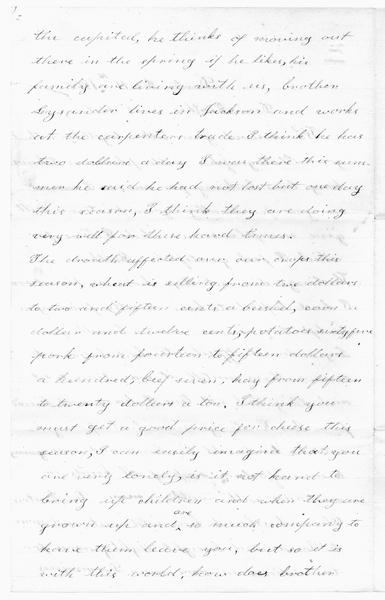 the capited, he thinks of moving out
there in the spring if he likes, his
family are living with us, brother
Lysander lives in Jackson and works
at the carpenters trade I think he has
two dollars a day I was there this sum-
mer he said he had not lost but one day
this season, I think they are doing
very well for these hard times.
The drouth affected our crops this
season, wheat is selling from two dollars
to two and fifteen cents a bushel, corn a
dollar and twelve cents, potatoes sixty five
pork from fourteen to fifteen dollars
a hundred, beef seven, hay from fifteen
to twenty dollars a ton. I think you
must get a good price for cheese this
season, I can easily imagine that you
are very lonely, is it not hard to
bring up children and when they are
are
grown up and so much company to
have them leave you, but so it is
with this world, how does brother